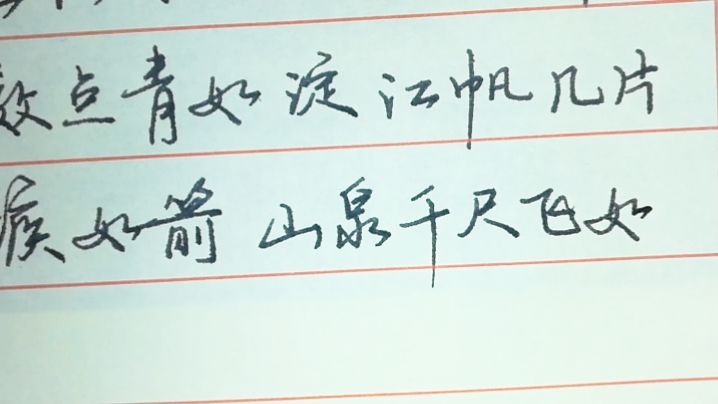 数点青如淀 江帆几片
疾如箭 山泉千尺飞如